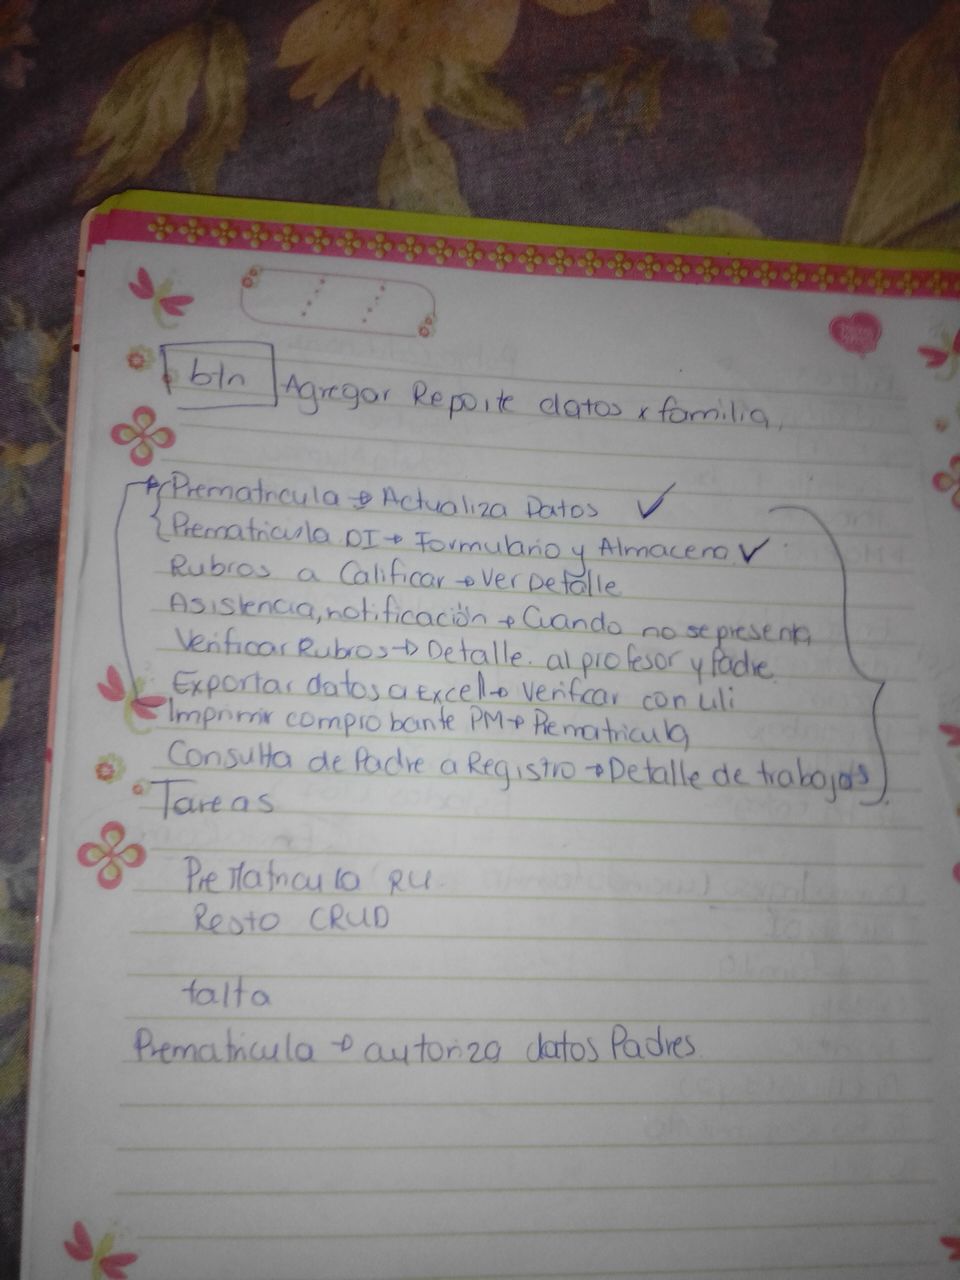 btn Agregar Reporte datos x familia,
Prematricula → Actualiza Datos ✓
Prematricula DI → Formulario y Almacena ✓
Rubros a Calificar → Ver Detalle
Asistencia, notificación → Cuando no se presenta
Verificar Rubros → Detalle. al profesor y Padre
Exportar datos a Excell → Verificar con Uli
Imprimir comprobante PM → Prematricula
Consulta de Padre a Registro → Detalle de trabajos
Tareas
PreMatricula RU.
Resto CRUD
falta
Prematricula → autoriza datos Padres.